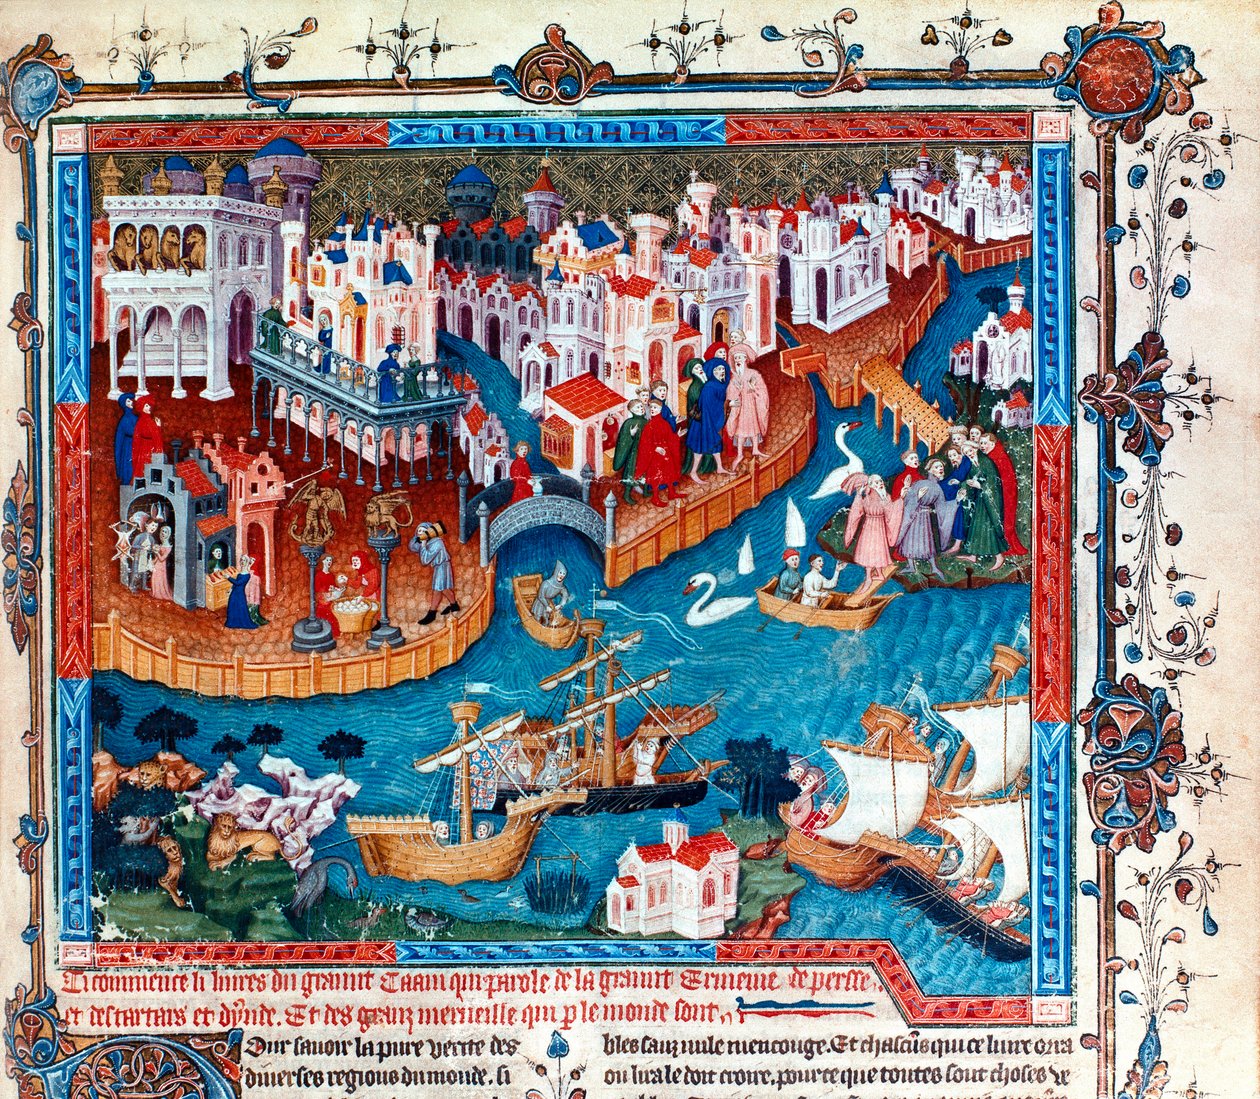 Ci commence li livres du graunt Caam qui parole de la graunt Ermenie de persse,
et des tartars et dynde. Et des granz merveille qui p le monde sont
Our savoir la pure verite des
diverses regions du monde. si
bles sanz nule mencouge. Et chascuns qui ce livre orra
ou lira le doit croire. pour ce que toutes sont choses ve